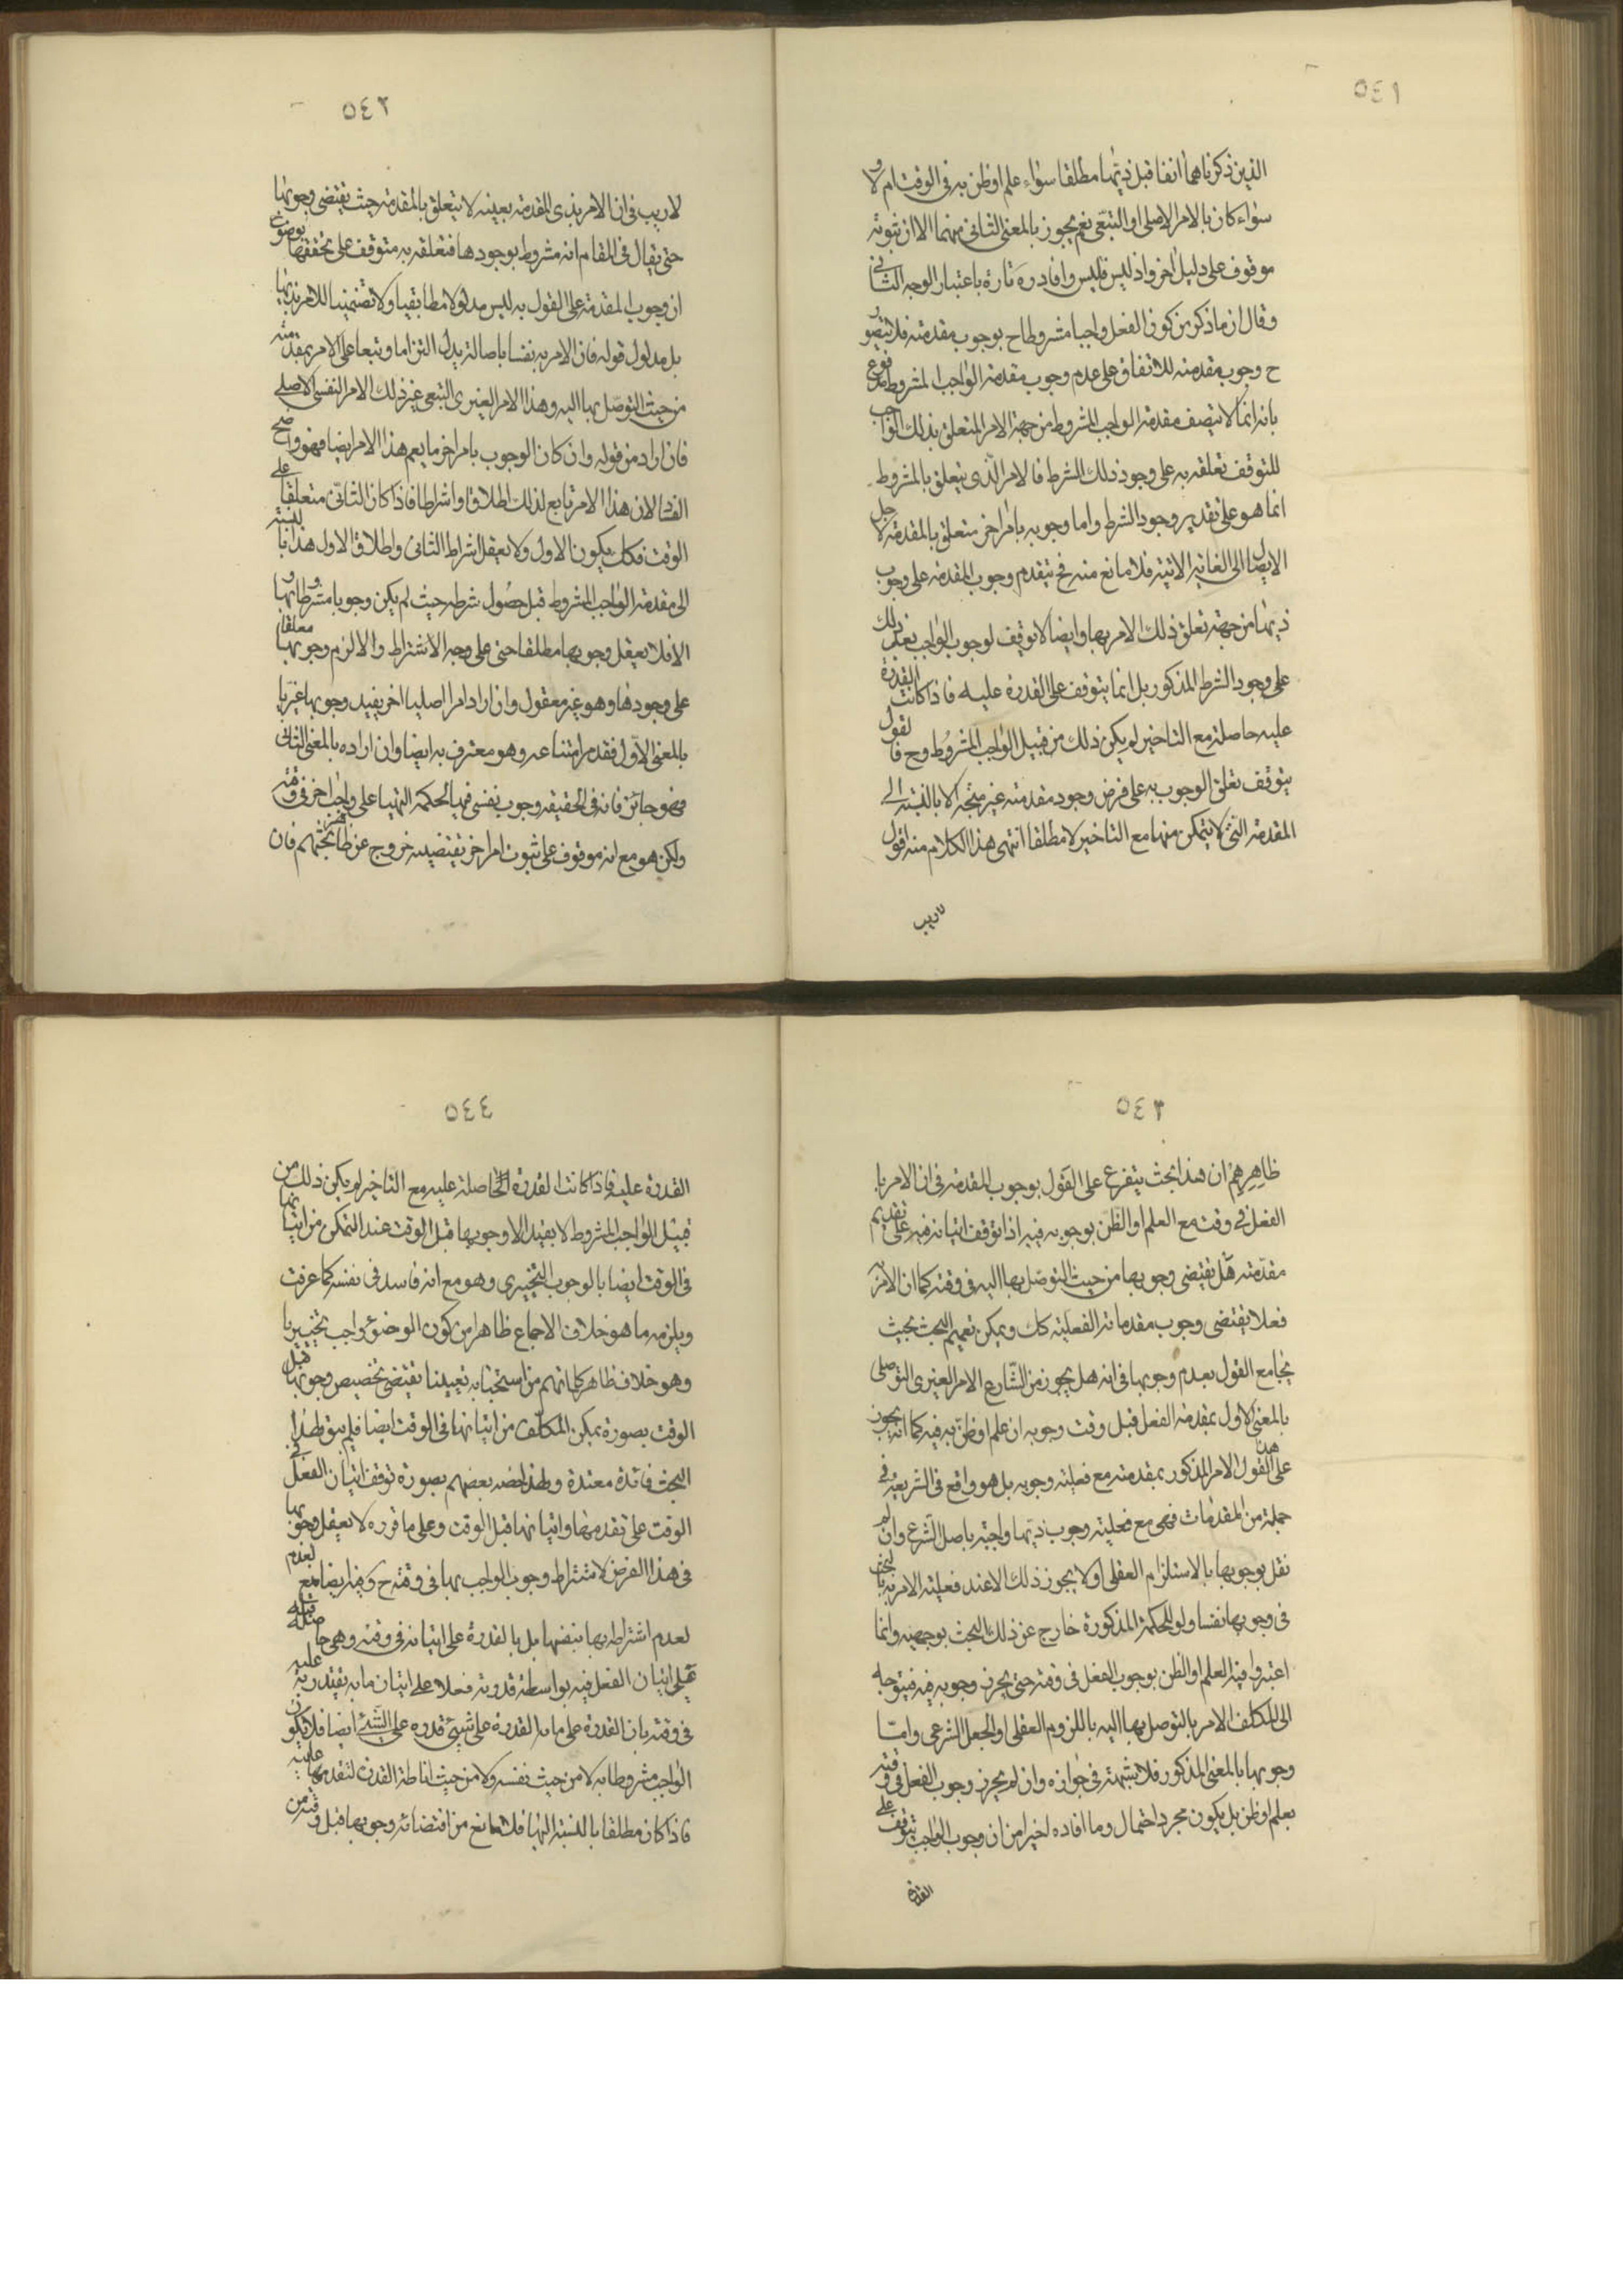 ٥٤١
الذين ذكرناهما انفا قبل ذيها مطلقا سواء علم او ظن به فى الوقت ام لا و
سواء كان بالامر الاصلى او التبعى نعم يجوز بالمعنى الثانى منهما الا ان ثبوته
موقوف على دليل اخر واذ ليس فليس وافاد ره تارة باعتبار الوجه الثانى
وقال ان ما ذكر من كون الفعل واجبا مشروطا ح بوجوب مقدمته فلا يتصور
ح وجوب مقدمته للاتفاق على عدم وجوب مقدمة الواجب المشروط مدفوع
بانه انما لا يتصف مقدمة الواجب المشروط من جهة الامر المتعلق بذلك الواجب
للتوقف تعلقه به على وجود ذلك الشرط فالامر الذى يتعلق بالمشروط
انما هو على تقدير وجود الشرط واما وجوبه بامر اخر متعلق بالمقدمة لاجل
الايصال الى الغاية الاتية فلا مانع منه فح يتقدم وجوب المقدمة على وجوب
ذيها من جهة تعلق ذلك الامر بها وايضا لا توقيف لوجوب الواجب بعد ذلك
على وجود الشرط المذكور بل انما يتوقف على القدرة عليه فاذا كانت القدرة
عليه حاصلة مع التاخير لم يكن ذلك من قبيل الواجب المشروط وح فالقول
يتوقف تعلق الوجوب به على فرض وجود مقدمته غير متجه الا بالنسبة الى
المقدمة التى لا يتمكن منها مع التاخير لا مطلقا انتهى هذا الكلام منه اقول
لا ريب
٥٤٢
لا ريب فى ان الامر بذى المقدمة بعينه لا يتعلق بالمقدمة حيث يقتضى وجوبها
حتى يقال فى المقام انه مشروط بوجودها فتعلقه به متوقف على تحققها بوضوح
ان وجوب المقدمة على القول به ليس مدلولا مطابقيا ولا تضمنيا للامر بذيها
بل مدلول قوله فان الامر به نفسا باصالته يدل التزاما وتبعا على الامر بمقدمته
من حيث التوصل بها اليه وهذا الامر الغيرى التبعى غير ذلك الامر النفسى الاصلى
فان اراد من قوله وان كان الوجوب بامر اخر ما يعم هذا الامر ايضا فهو واضح
الفساد لان هذا الامر تابع لذلك اطلاقا واشراطا فاذا كان الثانى متعلقا على
الوقت فكك يكون الاول ولا يعقل اشراط الثانى واطلاق الاول هذا بالنسبة
الى مقدمة الواجب المشروط قبل حصول شرطه حيث لم يكن وجوبا مشروطا بها و
الا فلا يعقل وجوبها مطلقا حتى على وجه الاشتراط والا لزم وجوبها معلقا
على وجودها وهو غير معقول وان اراد امرا اصليا اخر يفيد وجوبها غيريا
بالمعنى الاول فقد مر امتناعه وهو معترف به ايضا وان اراده بالمعنى الثانى
فهو جائز فانه فى الحقيقة وجوب نفسى فيها لحكمة التهيا على واجب اخر فى وقته
ولكن هو مع انه موقوف على ثبوت امر اخر يقتضيه خروج عن ظاهر بحثهم فان
٥٤٣
ظاهرهم ان هذا بحث يتفرع على القول بوجوب المقدمة فى ان الامر با
الفعل فى وقت مع العلم او الظن بوجوبه فيه اذا توقف اتيانه فيه على تقديم
مقدمته هل يقتضى وجوبها من حيث التوصل بها اليه فى وقته كما ان الامر به
فعلا يقتضى وجوب مقدماته الفعلية كك ويمكن تعميم البحث بحيث
يجامع القول بعدم وجوبها فى انه هل يجوز من الشارع الامر الغيرى التوصلى
بالمعنى الاول بمقدمة الفعل قبل وقت وجوبه ان علم او ظن به فيه كما انه يجوز
على هذا القول الامر المذكور بمقدمته مع فعلية وجوبه بل هو واقع فى الشريعة فى
جملة من المقدمات فهى مع فعلية وجوب ذيها واجبة باصل الشرع وان لم
نقل بوجوبها بالاستلزام العقلى او لا يجوز ذلك الا عند فعلية الامر به فالبحث
فى وجوبها نفسا ولو للحكمة المذكورة خارج عن ذلك البحث بوجهيه وانما
اعتبروا فيه العلم او الظن بوجوب الفعل فى وقته حتى يحرز وجوبه فيه فيتوجه
الى المكلف الامر بالتوصل بها اليه باللزوم العقلى او الجعل الشرعى واما
وجوبها بالمعنى المذكور فلا شبهة فى جوازه وان لم يحرز وجوب الفعل فى وقته
بعلم او ظن بل يكون مجرد احتمال وما افاده اخيرا من ان وجوب الواجب يتوقف على
القدرة
٥٤٤
القدرة عليه فاذا كانت القدرة الحاصلة عليه مع التاخير لم يكن ذلك من
قبيل الواجب المشروط لا يفيد الا وجوبها قبل الوقت عند التمكن من اتيانها
فى الوقت ايضا بالوجوب التخييرى وهو مع انه فاسد فى نفسه كما عرفت
ويلزمه ما هو خلاف الاجماع ظاهرا من كون الوضوء واجب تخييريا
وهو خلاف ظاهر كلماتهم من استحبابه تعيينا يقتضى تخصيص وجوبها قبل
الوقت بصورة يمكن المكلف من اتيانها فى الوقت ايضا فلم يبق لهذا
البحث فائدة معتدة ولهذا خصه بعضهم بصورة توقف اتيان الفعل فى
الوقت على تقدمها واتيانها قبل الوقت وعلى ما قرره لا يعقل وجوبها
فى هذا الفرض لاشتراط وجوب الواجب بها فى وقته ح وفيه ايضا منع لعدم
لعدم اشتراطه بها بنفسها بل بالقدرة على اتيانه فى وقته وهى حاصلة قبله
على اتيان الفعل فيه بواسطة قدرته فعلا على اتيان ما به يقتدر به عليه
فى وقته بان القدرة على ما به القدرة على شىء قدرة على الشىء ايضا فلا يكون
الواجب مشروطا به لا من حيث نفسه ولا من حيث اناطة القدرة لتقدمها عليه
فاذا كان مطلقا بالنسبة اليها فلا مانع من اقتضائه وجوبها قبل وقته من